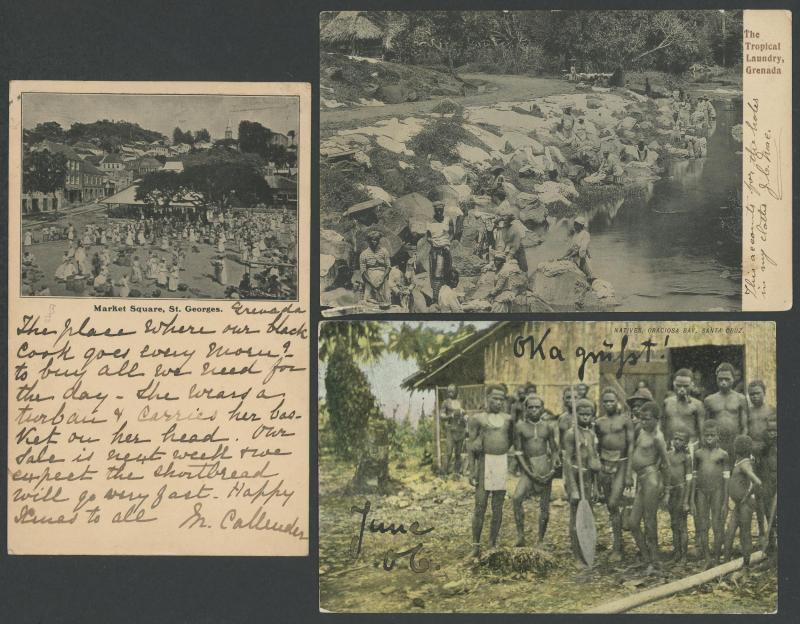 Market Square, St. Georges.
Grenada
The place where our black
Cook goes every morng
to buy all we need for
the day - She wears a
turban & carries her bas-
ket on her head. Our
Sale is next week & we
expect the shortbread
will go very fast - Happy
Xmas to all M. Callender
The
Tropical
Laundry,
Grenada
This accounts for the holes
in my clothes
NATIVES, GRACIOSA BAY, SANTA CRUZ.
Oka grüsst!
June
06.